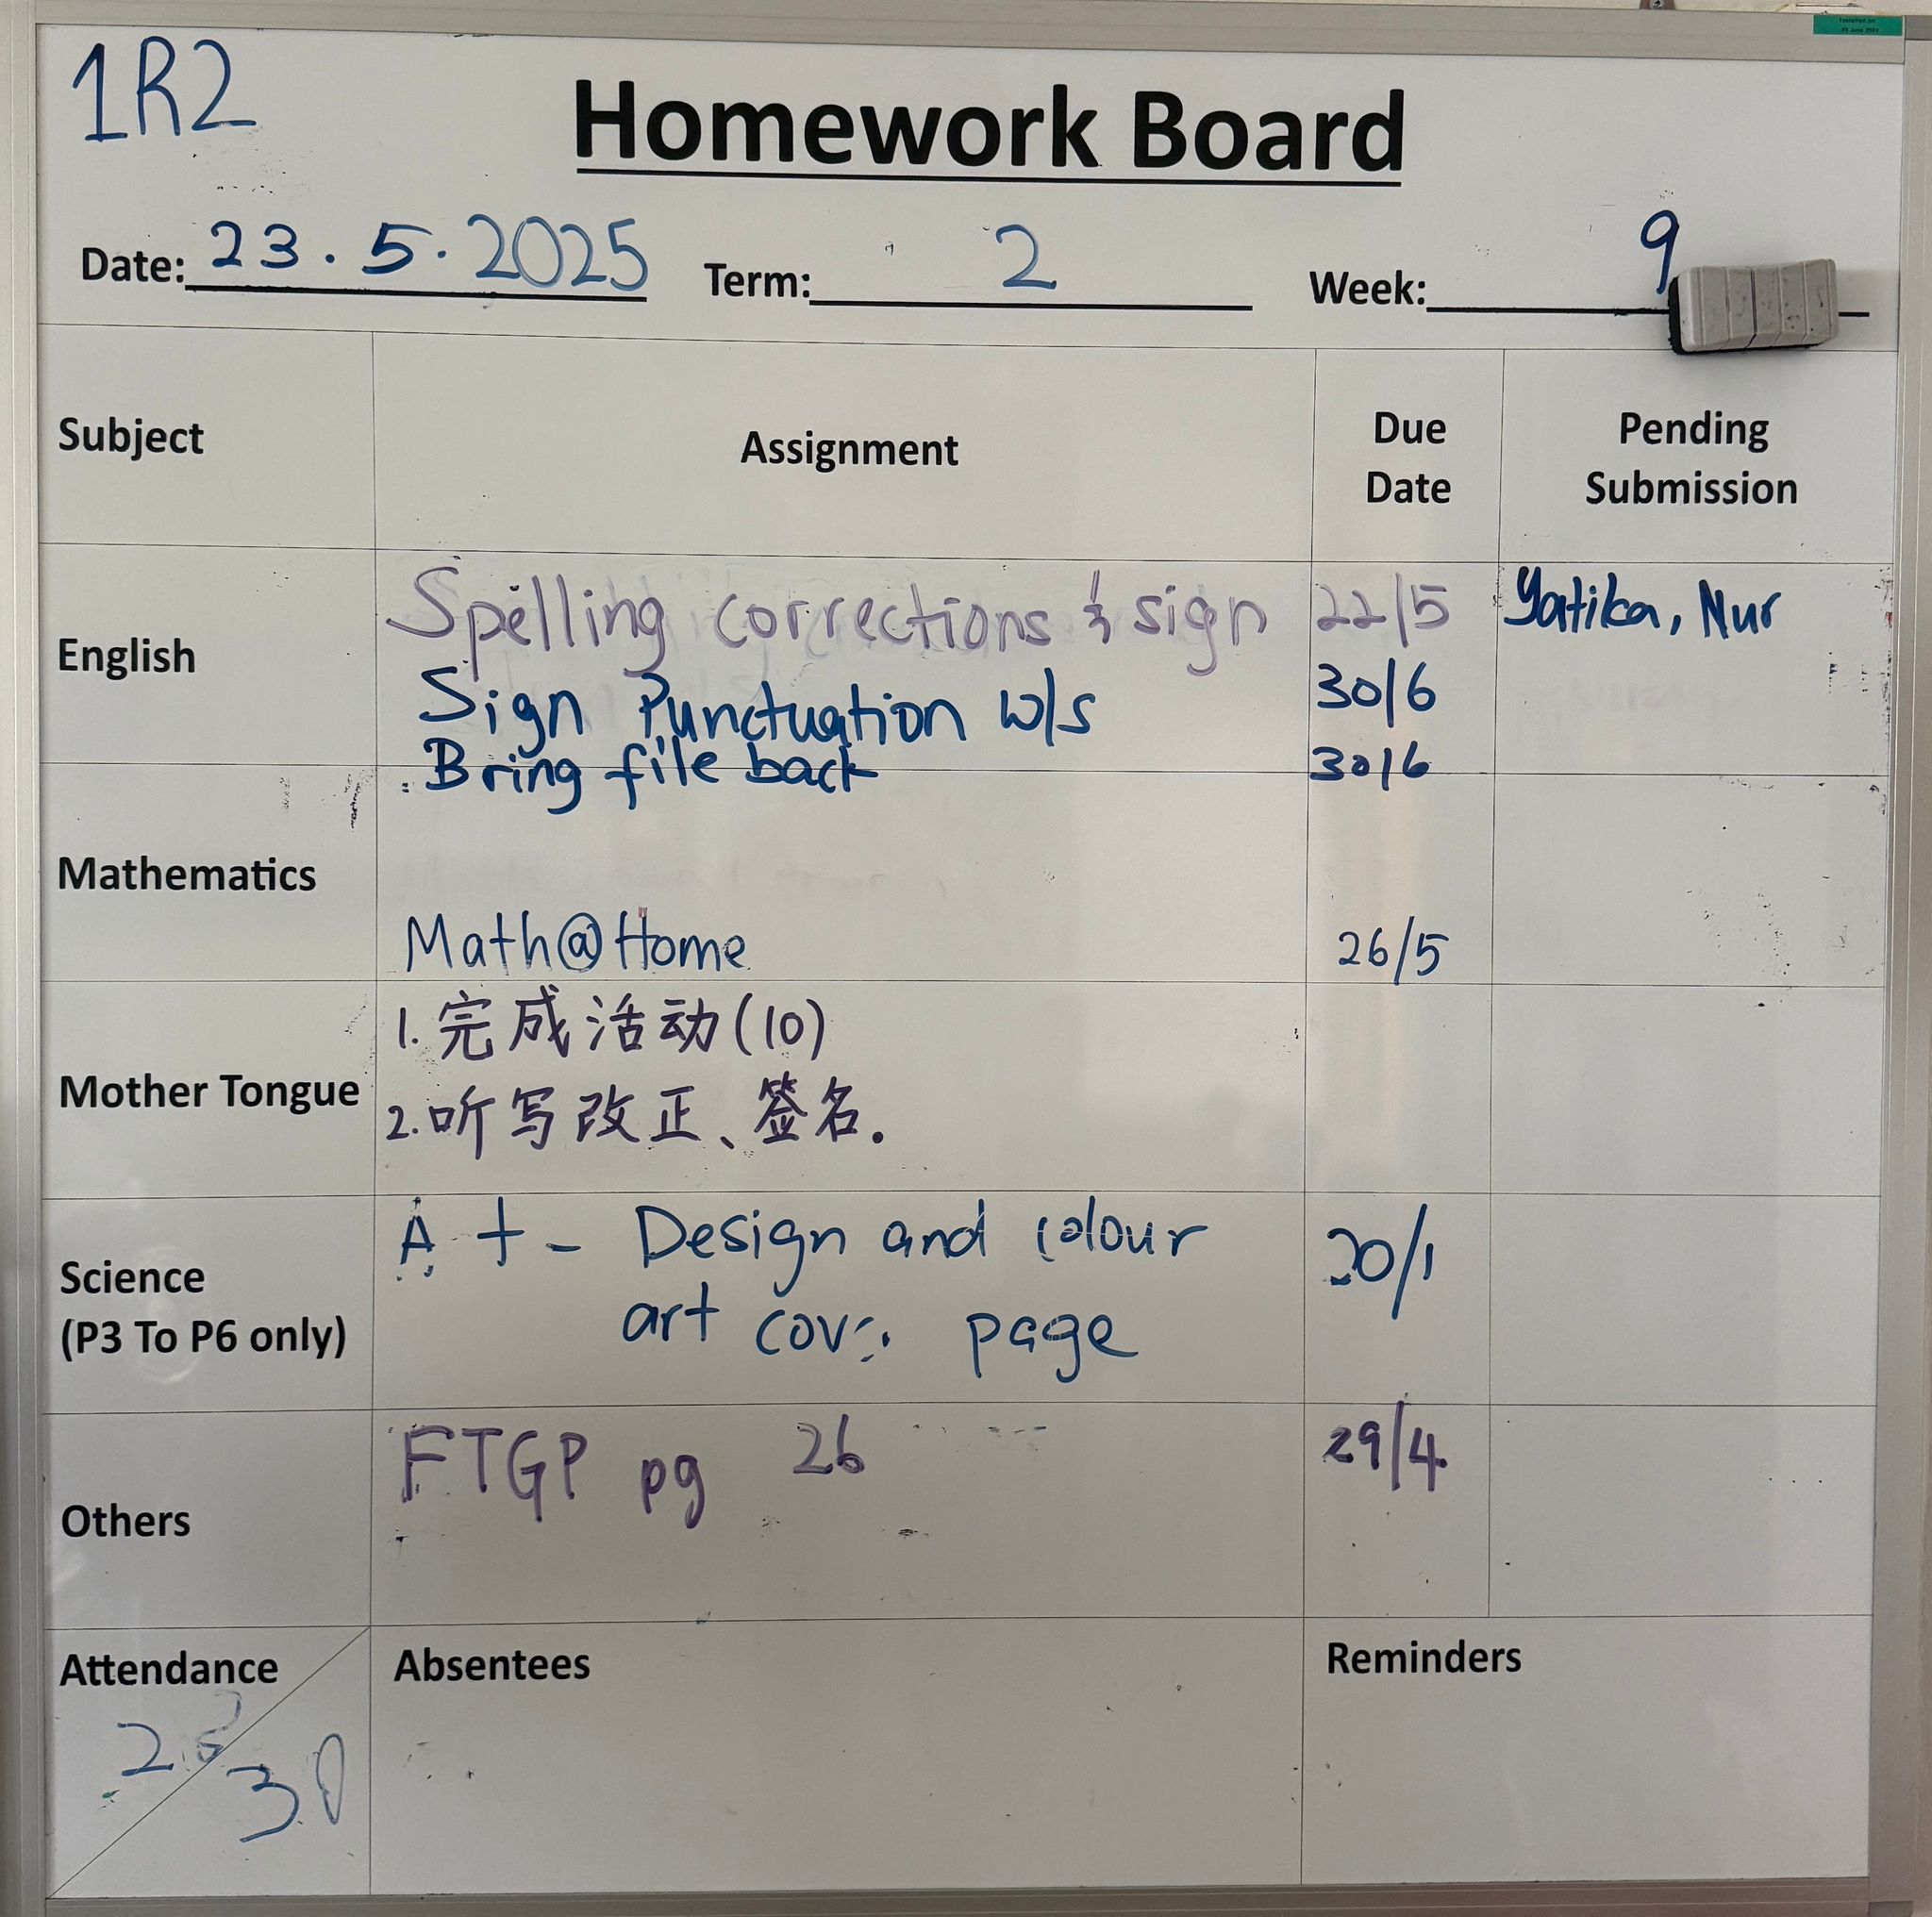 1R2
Homework Board
Date: 23.5.2025 Term: 2 Week: 9
Subject Assignment Due Date Pending Submission
English Spelling corrections & sign 22/5 Yatika, Nur
Sign Punctuation w/s 30/6
Bring file back 30/6
Mathematics
Math@Home 26/5
1. 完成活动(10)
Mother Tongue
2. 听写改正、签名.
Science
(P3 To P6 only)
A t - Design and colour 20/1
art cov page
Others FTGP pg 26 29/4
Attendance Absentees Reminders
30